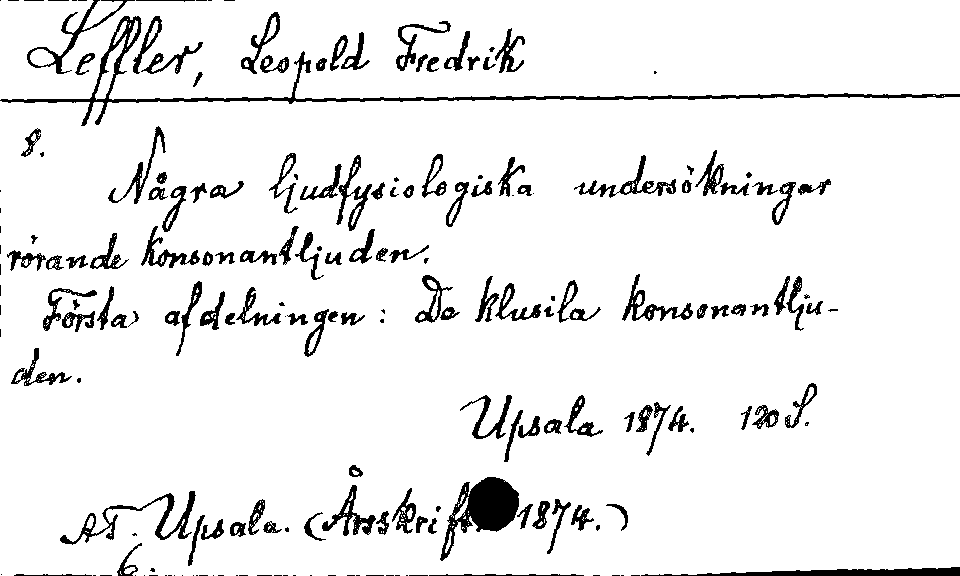 Leffler, Leopold Fredrik
8.
Några ljudfysiologiska undersökningar
rörande konsonantljuden.
Första afdelningen: De klusila konsonantlju-
den.
Upsala 1874. 120 S.
AT. Upsala. (Årsskrift 1874.)
6.